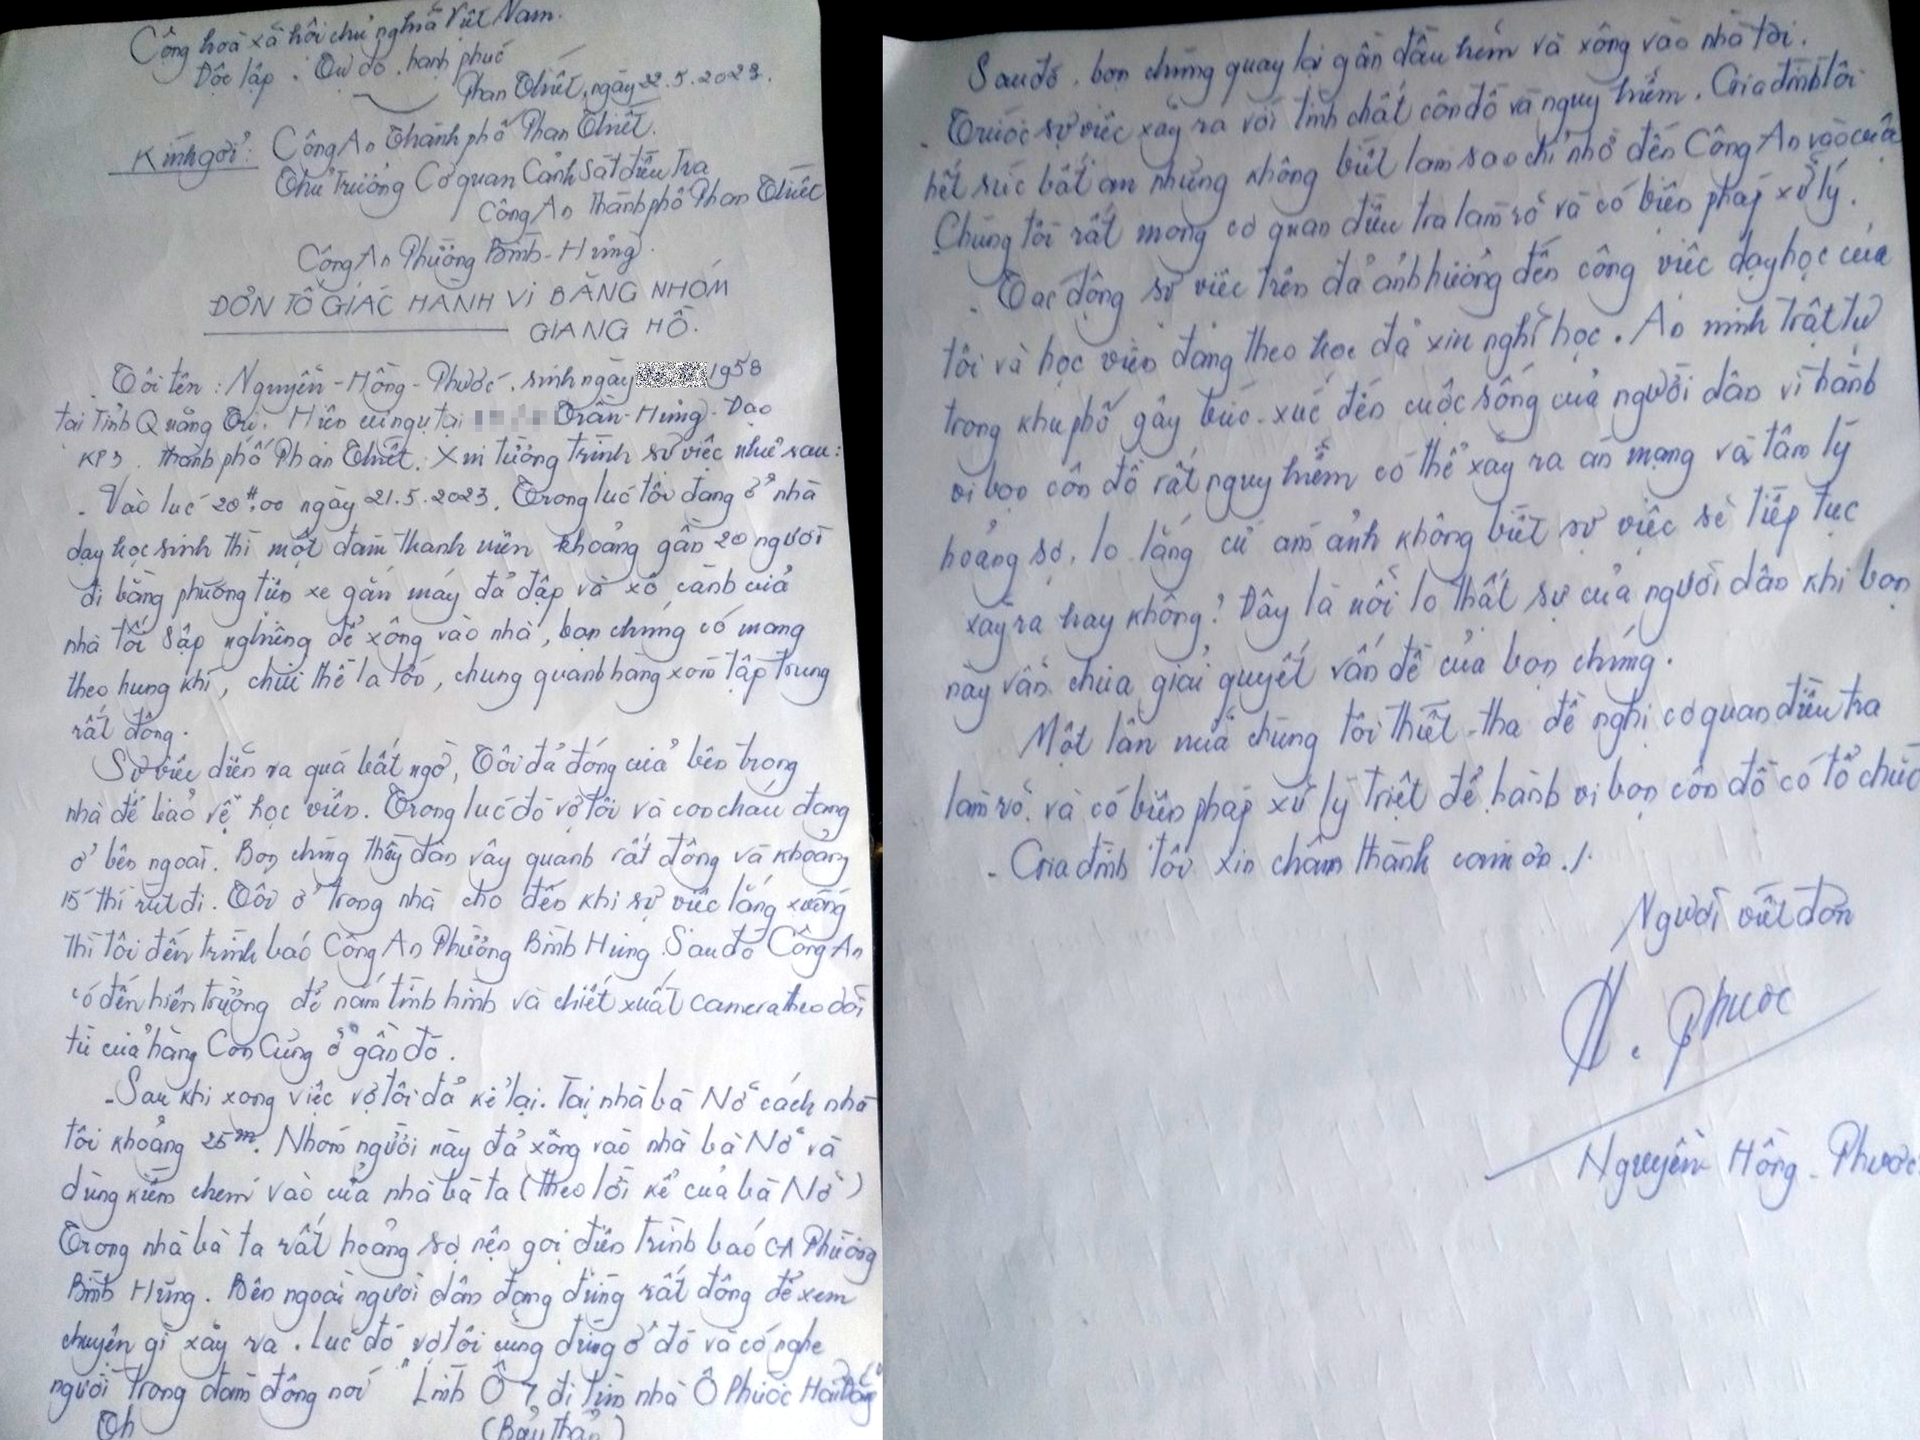 Công hoà xã hôi chủ nghĩa Việt Nam.
Độc lập. Tự do. hạnh phúc
Phan Thiết, ngày 22.5.2023.
Kính gởi: Công An Thành phố Phan Thiết.
Thủ Trưởng Cơ quan Cảnh Sát điều tra
Công An Thành phố Phan Thiết
Công An Phường Bình-Hưng.
ĐƠN TỐ GIÁC HÀNH VI BĂNG NHÓM
GIANG HỒ.
Tôi tên: Nguyễn-Hồng-Phước, sinh ngày 1958
tại tỉnh Quảng Trị. Hiện cư ngụ tại Trần-Hưng-Đạo
KP3. thành phố Phan Thiết. Xin tường trình sự việc như sau:
- Vào lúc 20H.00 ngày 21.5.2023. Trong lúc tôi đang ở nhà
dạy học sinh thì một đám thanh niên khoảng gần 20 người
đi bằng phương tiện xe gắn máy đả đập và xô cánh cửa
nhà tôi sập nghiêng để xông vào nhà, bọn chúng có mang
theo hung khí, chửi thề la lối, chung quanh hàng xóm tập trung
rất đông.
Sự việc diễn ra quá bất ngờ, Tôi đả đóng cửa bên trong
nhà để bảo vệ học viên. Trong lúc đó vợ tôi và con cháu đang
ở bên ngoài. Bọn chúng thấy dân vây quanh rất đông và khoảng
15' thì rút đi. Tôi ở trong nhà cho đến khi sự việc lắng xuống
thì tôi đến trình báo Công An Phường Bình Hưng. Sau đó Công An
có đến hiện trường để nắm tình hình và chiết xuất camera theo dõi
từ cửa hàng Con Cưng ở gần đó.
- Sau khi xong việc vợ tôi đả kể lại. Tại nhà bà Nở cách nhà
tôi khoảng 25m. Nhóm người này đả xông vào nhà bà Nở và
dùng kiếm chém vào cửa nhà bà ta (theo lời kể của bà Nở)
Trong nhà bà ta rất hoảng sợ nên gọi điện trình báo CA Phường
Bình Hưng. Bên ngoài người dân đang đứng rất đông để xem
chuyện gì xảy ra. Lúc đó vợ tôi cùng đứng ở đó và có nghe
người trong đám đông nói "Lình Ô 7 đi tìm nhà Ô Phước
(Bản thân)
Sau đó, bọn chúng quay lại gần đầu hẻm và xông vào nhà tôi.
- Trước sự việc xảy ra với tính chất côn đồ và nguy hiểm. Gia đình tôi
hết sức bất an nhưng không biết làm sao chỉ nhờ đến Công An vào cuộc
- Chúng tôi rất mong cơ quan điều tra làm rỏ và có biện pháp xử lý.
- Tác động sự việc trên đả ảnh hưởng đến công việc dạy học của
tôi và học viên đang theo học đả xin nghỉ học. An ninh trật tự
trong khu phố gây bức-xúc đến cuộc sống của người dân vì hành
vi bọn côn đồ rất nguy hiểm có thể xảy ra án mạng và tâm lý
hoảng sợ, lo lắng cứ ám ảnh không biết sự việc sẽ tiếp tục
xảy ra hay không? Đây là nỗi lo thật sự của người dân khi bọn
này vẫn chưa giải quyết vấn đề của bọn chúng.
Một lần nửa chúng tôi thiết-tha đề nghị cơ quan điều tra
làm rỏ, và có biện pháp xử lý triệt để hành vi bọn côn đồ có tổ chức
- Gia đình tôi xin chân thành cám ơn./.
Người viết đơn
H. Phước
Nguyễn Hồng-Phước